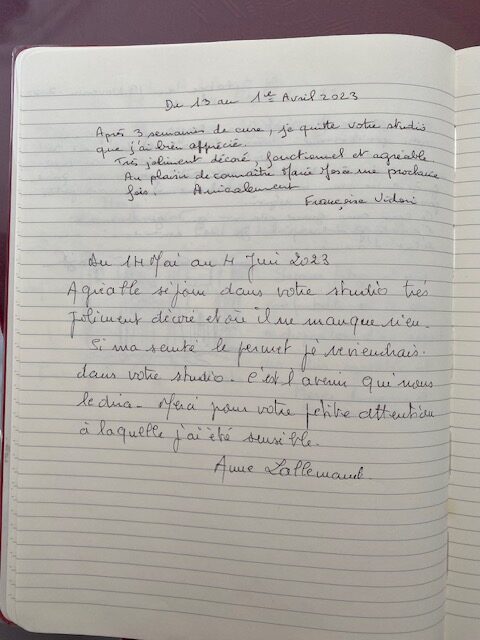 Du 13 au 1er Avril 2023
Après 3 semaines de cure, je quitte votre studio
que j'ai bien apprécié.
Très joliment décoré, fonctionnel et agréable
Au plaisir de connaître Marie Josée une prochaine
fois. Amicalement
Françoise
Du 14 Mai au 4 Juin 2023
Agréable séjour dans votre studio très
joliment décoré et où il ne manque rien.
Si ma santé le permet je reviendrais
dans votre studio. C'est l'avenir qui nous
le dira. Merci pour votre petite attention
à laquelle j'ai été sensible.
Anne Lallemand